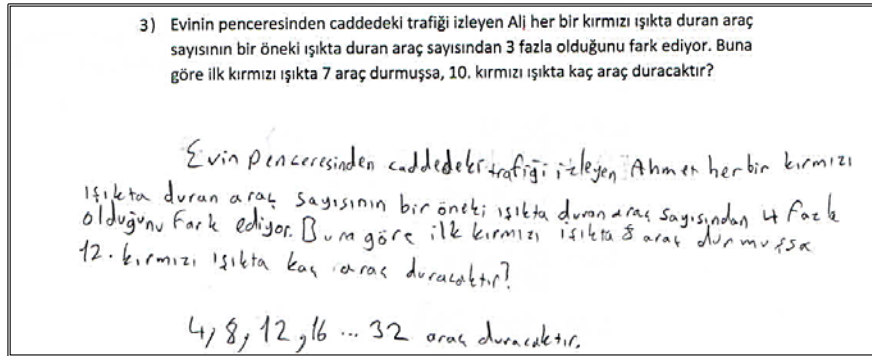 3) Evinin penceresinden caddedeki trafiği izleyen Ali her bir kırmızı ışıkta duran araç
sayısının bir öneki ışıkta duran araç sayısından 3 fazla olduğunu fark ediyor. Buna
göre ilk kırmızı ışıkta 7 araç durmuşsa, 10. kırmızı ışıkta kaç araç duracaktır?
Evin penceresinden caddedeki trafiği izleyen Ahmet her bir kırmızı
ışıkta duran araç sayısının bir öneki ışıkta duran araç sayısından 4 fazla
olduğunu fark ediyor. Buna göre ilk kırmızı ışıkta 8 araç durmuşsa
12. kırmızı ışıkta kaç araç duracaktır?
4, 8, 12, 16 ... 32 araç duracaktır.